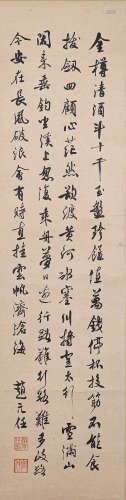 金樽清酒斗十千玉盤珍饈值萬錢停杯投筯不能食
拔劔四顧心茫然欲渡黃河冰塞川將登太行雪滿山
閑來垂釣坐溪上忽復乘舟夢日邊行路難行路難多歧路
今安在長風破浪會有時直挂雲帆濟滄海 趙元任